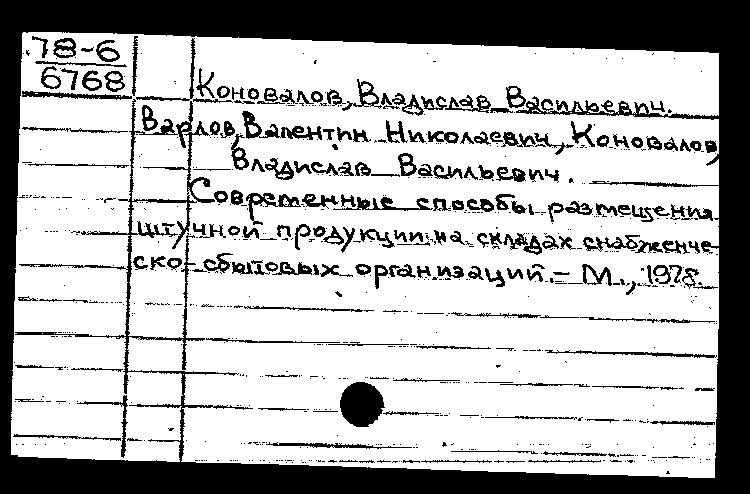 78-6
6768
Коновалов, Владислав Васильевич.
Варлов, Валентин Николаевич, Коновалов,
Владислав Васильевич.
Современные способы размещения
штучной продукции на складах снабженче
ско-сбытовых организаций. – М., 1978.